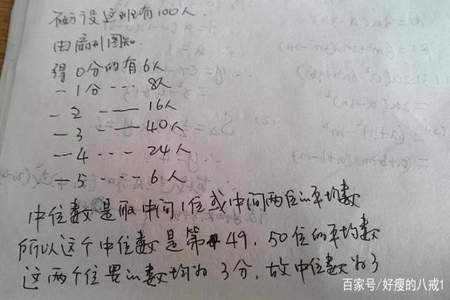 设这班有100人.
由扇形图知.
得0分的有6人
—1分---8人
—2 —— 16人
—3 ——— 40人
—4 ---- 24人
—5 --- 6人
中位数是取中间1位或中间两位的平均数
所以这个中位数是第49、50位的平均数
这两个位置的数均为3分,故中位数为3
百家号/好瘦的八戒1